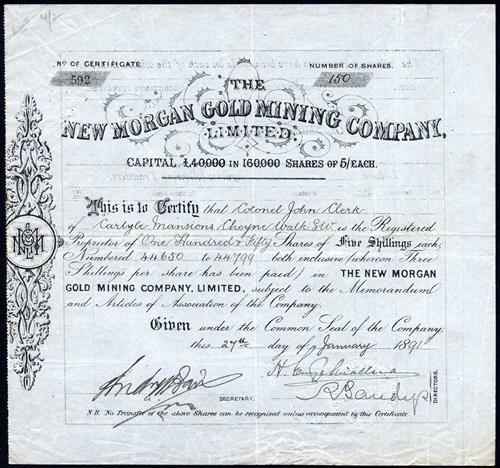 Nº OF CERTIFICATE
NUMBER OF SHARES.
592
150
THE
NEW MORGAN GOLD MINING COMPANY,
LIMITED.
CAPITAL £40,000 IN 160,000 SHARES OF 5/ EACH.
This is to Certify that Colonel John Clerk
of Carlyle Mansions Cheyne Walk S.W. is the Registered
Proprietor of One Hundred & Fifty Shares of Five Shillings each,
Numbered 44650 to 44799 both inclusive (whereon Three
Shillings per share has been paid) in THE NEW MORGAN
GOLD MINING COMPANY, LIMITED, subject to the Memorandum
and Articles of Association of the Company.
Given under the Common Seal of the Company
this 27th day of January 1891
SECRETARY.
DIRECTORS.
N.B. No Transfer of the above Shares can be recognised unless accompanied by this Certificate